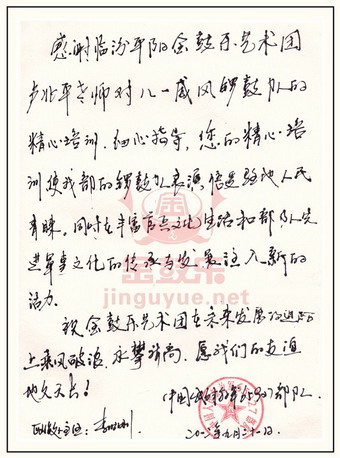 感谢临汾平阳金鼓乐艺术团
老师对八一威风锣鼓队的
精心培训、细心指导，您的精心培
训使我部的锣鼓队表演，倍受驻地人民
青睐，同时在丰富官兵文化生活和部队先
进军事文化的传承与发展注入新的
活力。
祝金鼓乐艺术团在未来发展的
上乘风破浪，永攀新高，愿我们的友谊
地久天长！
中国人民解放军 部队
金鼓乐
jinguyue.net